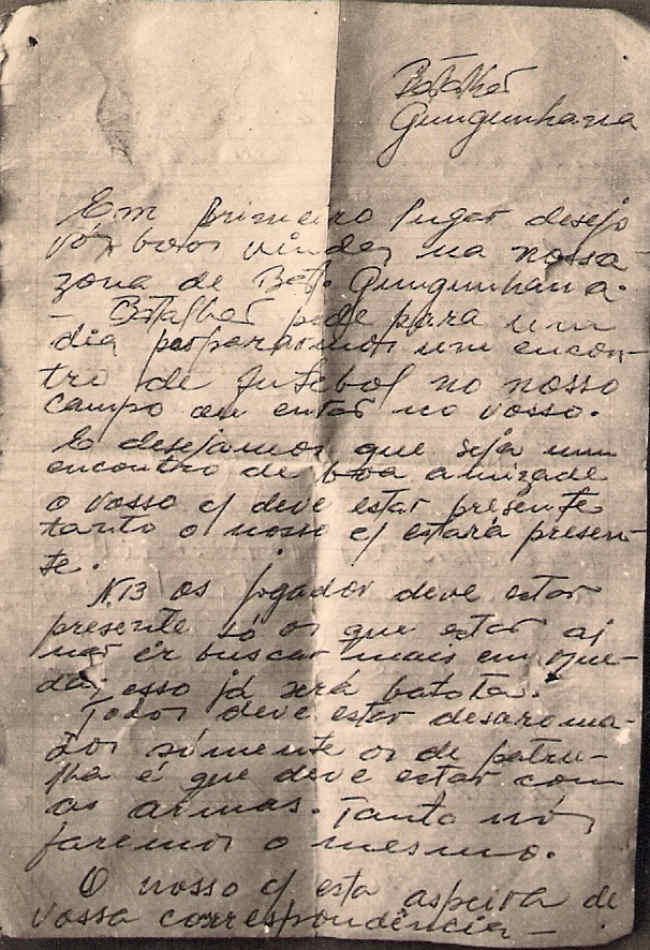 Batalhão
Gungunhana
Em primeiro lugar desejo
vós boas vindas na nossa
zona de Bat. Gungunhana.
- Batalhão pede para um
dia prepararmos um encon-
tro de futebol no nosso
campo ou entar no vosso.
E desejamos que seja um
encontro de boa amizade
o vosso c/ deve estar presente
tanto o nosso c/ estará presen-
te.
N.B os jogador deve estar
presente só os que estar ai
nar ér buscar mais em
esso já será batota.
Todos deve estar desaroma-
dos sómente os de patru-
lha é que deve estar com
as armas. Tanto nós
faremos o mesmo.
O nosso c/ esta aspeira de
vossa correspondência -